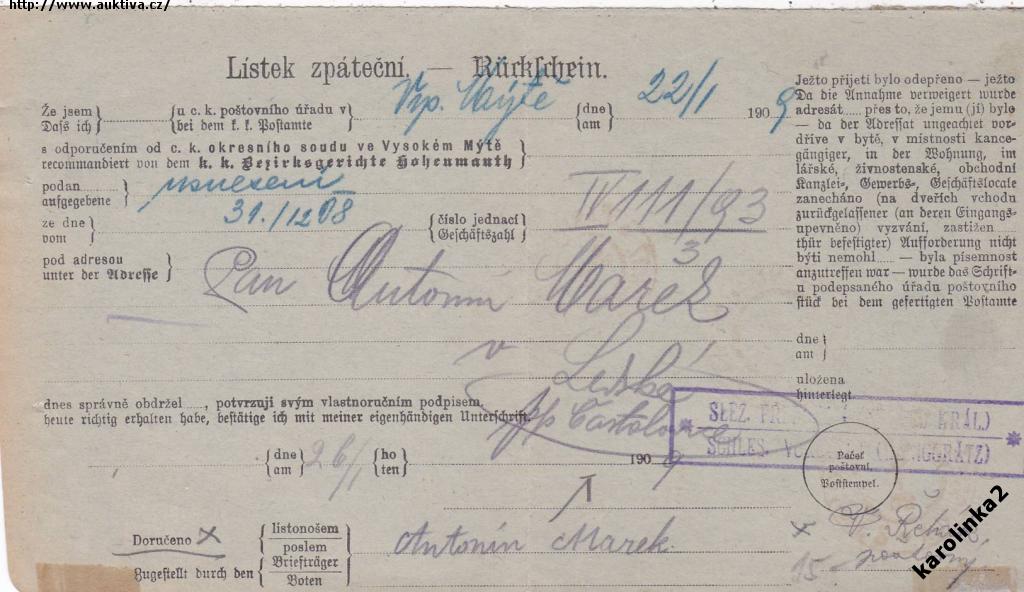 http://www.auktiva.cz/
Lístek zpáteční. — Rückschein.
Že jsem u c. k. poštovního úřadu v Vys. Mýtě dne 22/1 1909
Dass ich bei dem k. k. Postamte am
s odporučením od c. k. okresního soudu ve Vysokém Mýtě
recommandiert von dem k. k. Bezirksgerichte Hohenmauth
podan usnesení
aufgegebene
ze dne 31./12 08 číslo jednací IV 111/93
vom Geschäftszahl 3
pod adresou Pan Antonín Mareš
unter der Adresse
v
dnes správně obdržel, potvrzuji svým vlastnoručním podpisem.
heute richtig erhalten habe, bestätige ich mit meiner eigenhändigen Unterschrift.
pp
dne 26/1 ho 1909
am ten
Doručeno listonošem
poslem
Zugestellt durch den Briefträger
Boten
Antonín Marek
Ježto přijetí bylo odepřeno — ježto
Da die Annahme verweigert wurde
adresát přes to, že jemu (jí) bylo
— da der Adressat ungeachtet vor-
dříve v bytě, v místnosti kance-
gängiger, in der Wohnung, im
lářské, živnostenské, obchodní
Kanzlei-, Gewerbs-, Geschäftslocale
zanecháno (na dveřích vchodu
zurückgelassener (an deren Eingangs-
upevněno) vyzvání, zastižen
thür befestigter) Aufforderung nicht
býti nemohl — byla písemnost
anzutreffen war — wurde das Schrift-
u podepsaného úřadu poštovního
stück bei dem gefertigten Postamte
dne
am
uložena
hinterlegt.
SLEZ. KRÁL)
SCHLES.
Pečeť
poštovní.
Poststempel.
15
karolinka2